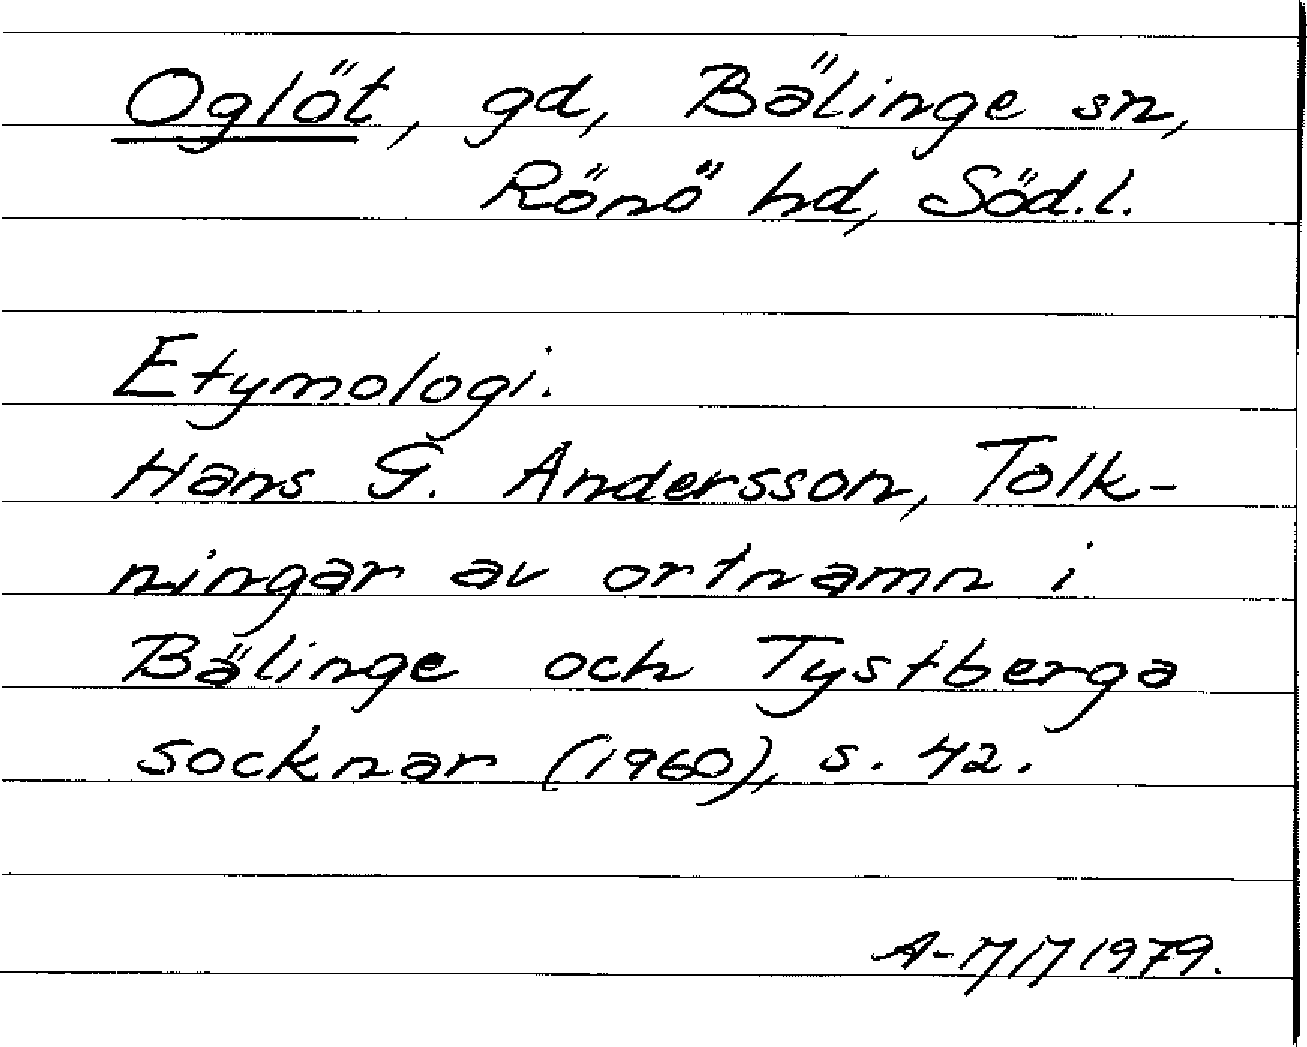 Oglöt, gd, Bälinge sn,
Rönö hd, Söd.l.
Etymologi.
Hans G. Andersson, Tolk-
ningar av ortnamn i
Bälinge och Tystberga
socknar (1960), s. 42.
1979.